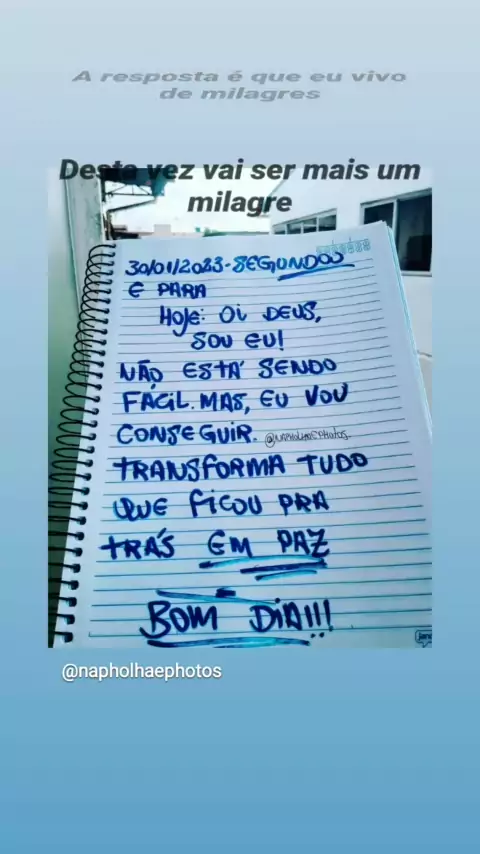 A resposta é que eu vivo
de milagres
Desta vez vai ser mais um
milagre
30/01/2023-SEGUNDOU
E PARA
HOJE: OI DEUS,
SOU EU!
NÃO ESTÁ SENDO
FÁCIL. MAS, EU VOU
CONSEGUIR. @NAPHOLHAEPHOTOS
TRANSFORMA TUDO
QUE FICOU PRA
TRÁS EM PAZ
BOM DIA!!!
jand
@napholhaephotos